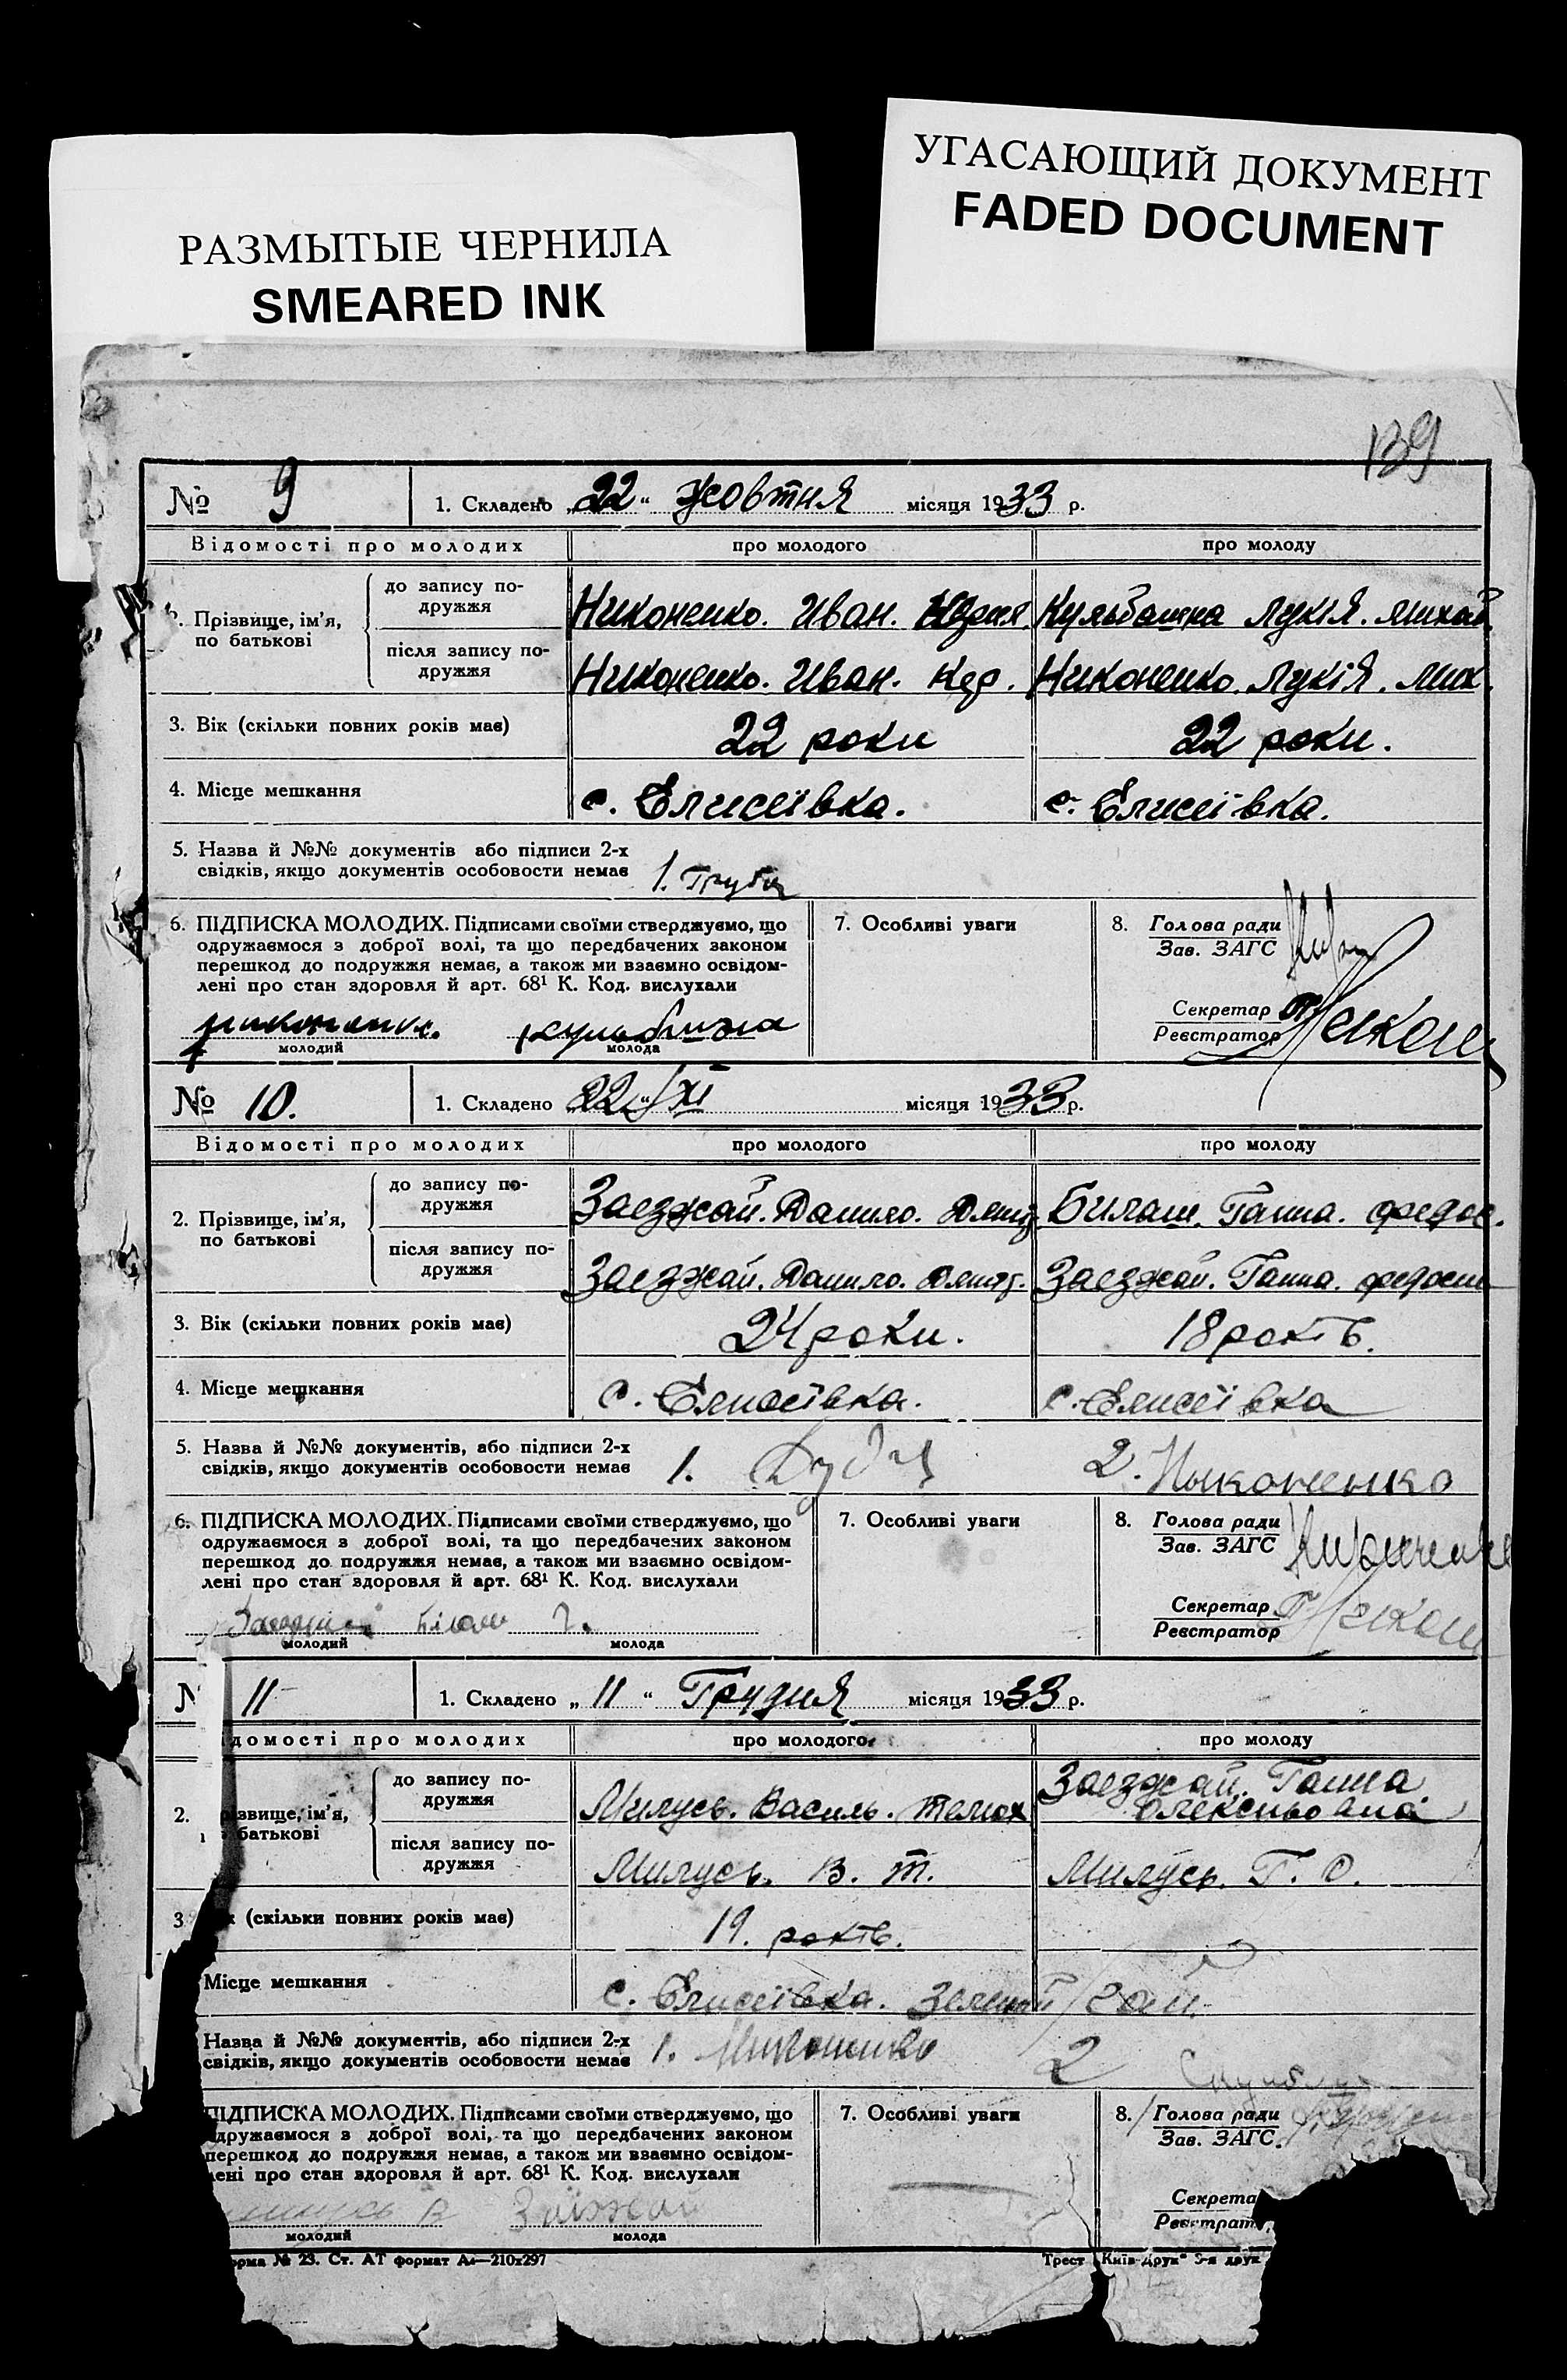 УГАСАЮЩИЙ ДОКУМЕНТ
FADED DOCUMENT
РАЗМЫТЫЕ ЧЕРНИЛА
SMEARED INK
139
№ 9 1. Складено „22“ Жовтня місяця 1933 р.
Відомості про молодих про молодого про молоду
2. Прізвище, ім’я, по батькові
до запису по-
дружжя
Никоненко. Иван. Кульбашна Лукія. Михай.
після запису по-
дружжя
Никоненко. Иван. Никоненко. Лукія. Мих.
3. Вік (скільки повних років має) 22 роки 22 роки.
4. Місце мешкання с. Елисеївка. с. Елисеївка.
5. Назва й №№ документів або підписи 2-х
свідків, якщо документів особовости немає 1.
6. ПІДПИСКА МОЛОДИХ. Підписами своїми стверджуємо, що
одружаємося з доброї волі, та що передбачених законом
перешкод до подружжя немає, а також ми взаємно освідом-
лені про стан здоровля й арт. 68¹ К. Код. вислухали
молодий молода
7. Особливі уваги
8. Голова ради
Зав. ЗАГС
Секретар
Реєстратор
№ 10. 1. Складено „22“/XI місяця 1933 р.
Відомості про молодих про молодого про молоду
2. Прізвище, ім’я, по батькові
до запису по-
дружжя
Заезжай. Данило. Дмит. Билаш. Ганна. Федос.
після запису по-
дружжя
Заезжай. Данило. Дмит. Заезжай. Ганна.
3. Вік (скільки повних років має) 24 роки. 18 років.
4. Місце мешкання с. Елисеївка. с. Елисеївка
5. Назва й №№ документів, або підписи 2-х
свідків, якщо документів особовости немає 1. 2. Ныконенко
6. ПІДПИСКА МОЛОДИХ. Підписами своїми стверджуємо, що
одружаємося з доброї волі, та що передбачених законом
перешкод до подружжя немає, а також ми взаємно освідом-
лені про стан здоровля й арт. 68¹ К. Код. вислухали
молодий молода
7. Особливі уваги
8. Голова ради
Зав. ЗАГС
Кириченко
Секретар
Реєстратор
11 1. Складено „11“ Грудня місяця 1933 р.
домості про молодих про молодого про молоду
2. звище, ім’я, батькові
до запису по-
дружжя
Милусь. Василь. Заезжай. Ганна
Олексиовна
після запису по-
дружжя
Милусь. В. Т. Милусь. Г. О.
3 к (скільки повних років має) 19. років.
Місце мешкання с. Елисеївка. Зелений Гай
Назва й №№ документів, або підписи 2-х
свідків, якщо документів особовости немає 1. 2
ПІДПИСКА МОЛОДИХ. Підписами своїми стверджуємо, що
дружаємося з доброї волі, та що передбачених законом
перешкод до подружжя немає, а також ми взаємно освідом-
лені про стан здоровля й арт. 68¹ К. Код. вислухали
Заїжжай
молодий молода
7. Особливі уваги
8. Голова ради
Зав. ЗАГС.
Секрета
Реєстрат
орма № 23. Ст. АТ формат А₄—210х297 Трест „Київ-Друк“ друк